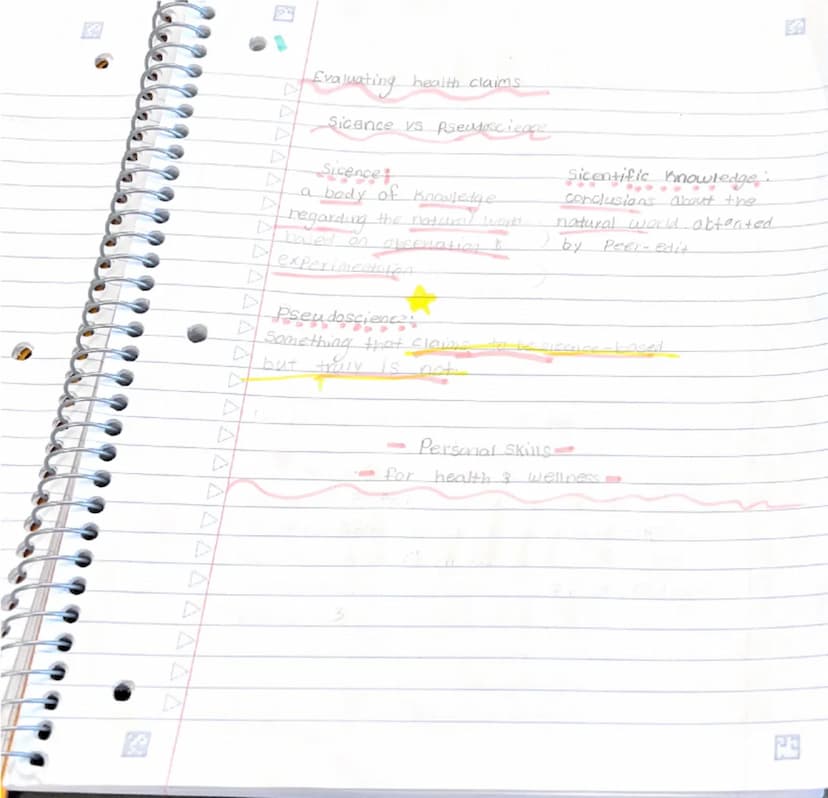 Evaluating health claims
Sicence vs Pseudoscience
Sicence:
a body of knowledge
regarding the natural world
based on observation &
experimentation
Sicentific knowledge:
conclusions about the
natural world obtented
by Peer-edit
Pseudoscience:
Something that claims to be sicence-based
but truly is not
- Personal Skills -
- for health & wellness -